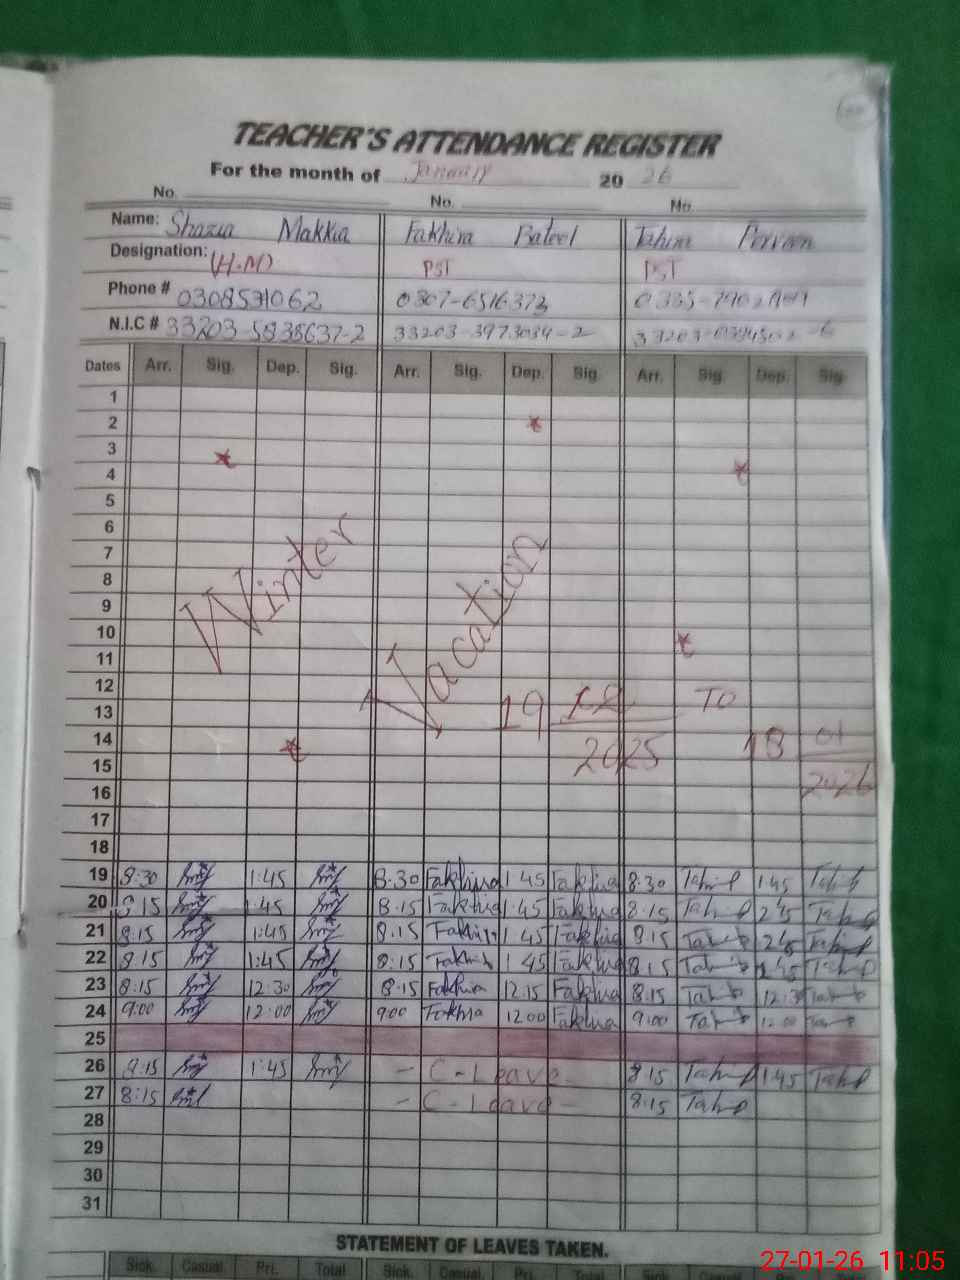 TEACHER'S ATTENDANCE REGISTER
For the month of January 20 26
No. No. No.
Name: Shazia Makkia Fakhira Bateel Tahira Perveen
Designation: (H.M) PST PST
Phone # 0308531062 0307-6516373 0335-
N.I.C # 33203-5838637-2 33203-3973034-2
Dates Arr. Sig. Dep. Sig. Arr. Sig. Dep. Sig. Arr. Sig. Dep. Sig.
1
2
3
4
5
6
7
8
9
10
11
12
13
14
15
16
17
18
Winter Vacation 19 12 2025 TO 18 01 2026
19 8:30 1:45 8:30 Fakhira 1:45 Fakhira 8:30 1:45
20 8:15 1:45 8:15 Fakhira 1:45 Fakhira 8:15 2:45
21 8:15 1:45 8:15 Fakhira 1:45 Fakhira 8:15 2:45
22 8:15 1:45 8:15 Fakhira 1:45 Fakhira 8:15
23 8:15 12:30 8:15 Fakhira 12:15 Fakhira 8:15 12:30
24 9:00 12:00 9:00 Fakhira 12:00 Fakhira 9:00 12:00
25
26 1:45 - C-Leave - 8:15 1:45
27 8:15 - C-Leave - 8:15
28
29
30
31
STATEMENT OF LEAVES TAKEN.
Sick. Casual. Pri. Total Sick. Casual. Pri. Total Sick. Casual. Pri. Total
27-01-26 11:05